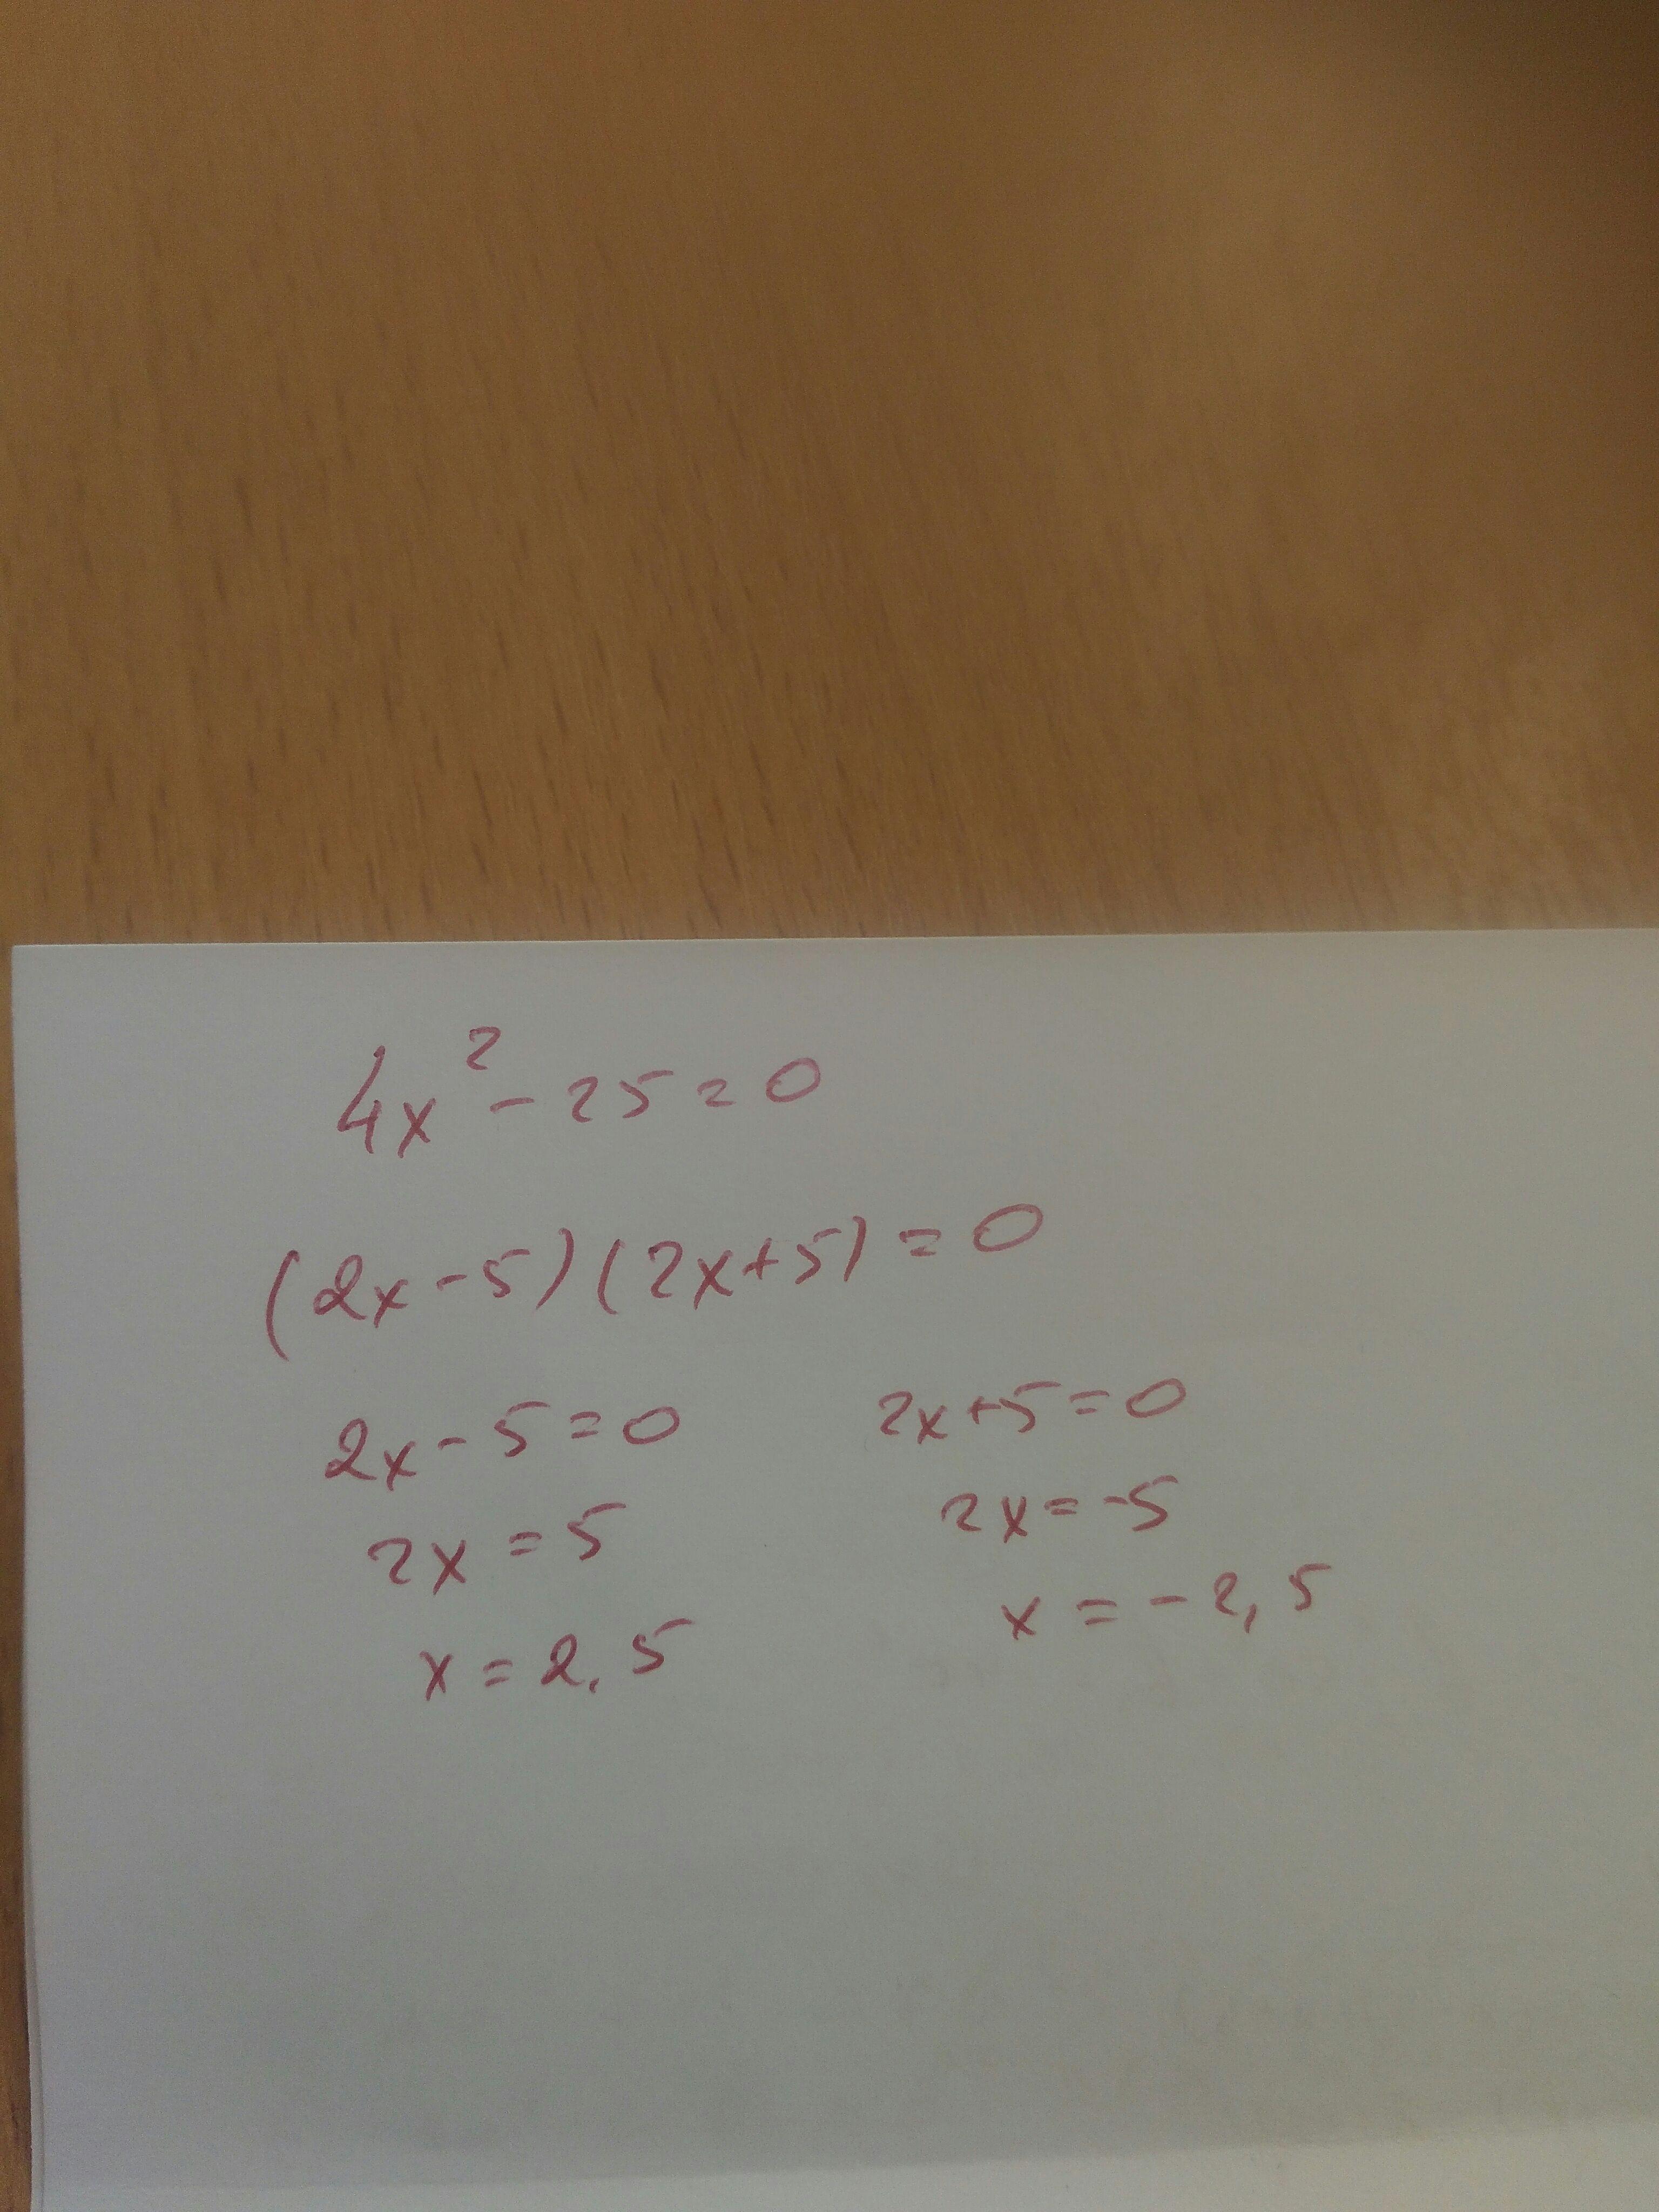 4x² - 25 = 0
(2x - 5) (2x + 5) = 0
2x - 5 = 0
2x = 5
x = 2,5
2x + 5 = 0
2x = -5
x = -2,5